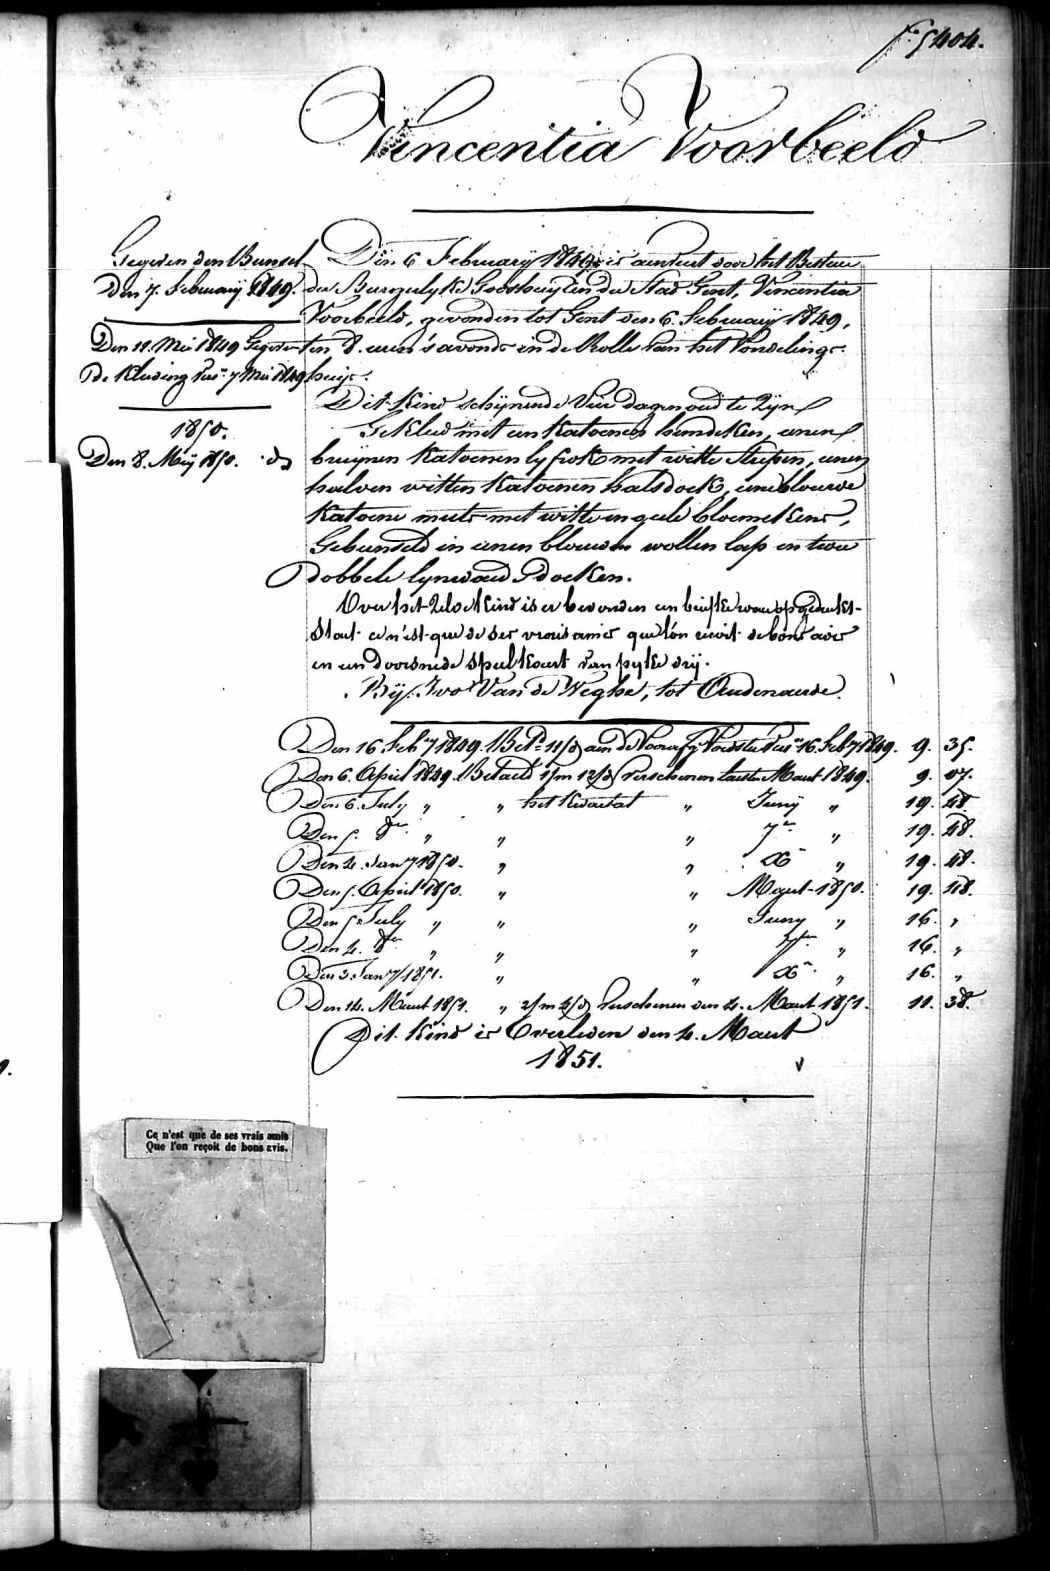 f° 5404.
Vincentia Voorbeeld
Gegeven den Bunsel
den 7. February 1849.
Den 11. Mei 1849 Gegeven
de Kleeding Pers. 7 Mei 1849
1850.
Den 8. Meij 1850. do
Den 6 February 1849 is aenveert door het Bestuer
der Burgerlyke Godshuyzen der Stad Gent, Vincentia
Voorbeeld, gevonden tot Gent den 6. February 1849,
ten 8. uren 's avonds in de Rolle van het Vondelings-
huijs.
Dit Kind schijnende vier dagen oud te Zijn
Gekleed met een Katoenen hemdeken, eenen
bruijnen Katoenen lyfrok met witte strepen, eenen
halven witten Katoenen halsdoek, eene blauwe
Katoene muts met witte en geele bloemekens,
Gebunseld in eenen blauwen wollen lap en twee
dobbele lynwaed doeken.
Over het Zelve Kind is er bevonden een briefke waer op gedrukt
Staet ce n'est que de ses vrais amis que l'on reçoit de bons avis
en een doorsnede Speelkaert van pyke drij.
Bij Ivo Van de Weghe, tot Oudenaerde.
Den 16 Feb.ry 1849. Bet.d 11/d aen de Voorafg. Voedster Pers. 16. Feb.ry 1849. 9. 35.
Den 6. April 1849. Betaeld 1/m 12/d verschenen laetste Maert 1849. 9. 07.
Den 6. July " " het Kwartael " Juny " 19. 48.
Den 5. 8er " " " 7er " 19. 48.
Den 4. Jan.ry 1850. " " Xer " 19. 48.
Den 5. April 1850. " " Maert 1850. 19. 48.
Den 5. July " " " Juny " 16. "
Den 4. 8er " " " 7er " 16. "
Den 3. Jan.ry 1851. " " Xer " 16. "
Den 14. Maert 1851. " 2/m 4/d verschenen den 4. Maert 1851. 11. 38.
Dit Kind is Overleden den 4. Maert
1851.
Ce n'est que de ses vrais amis
Que l'on reçoit de bons avis.